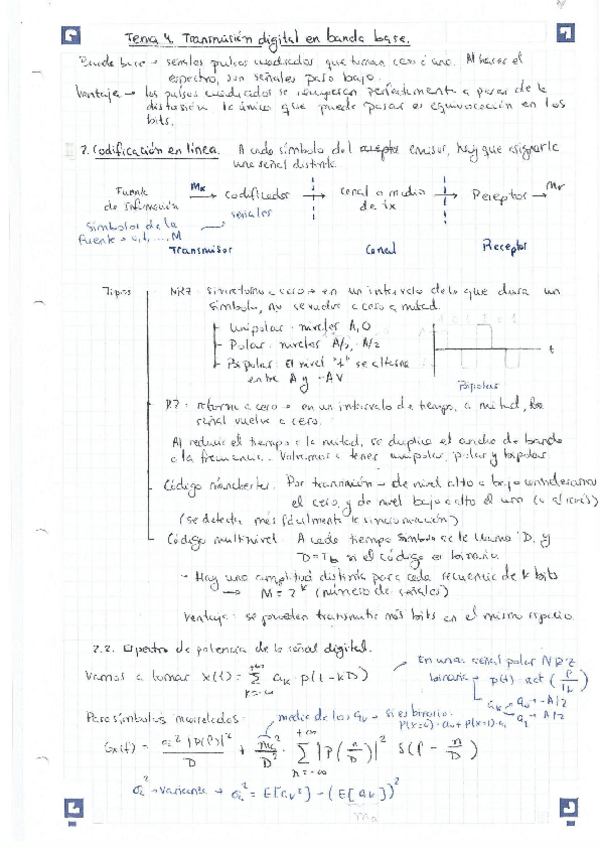 Tema 4. Transmisión digital en banda base.
Banda base → señales pulsos cuadrados que toman cero é uno. Al hacer el
espectro, son señales paso bajo.
Ventaja → los pulsos cuadrados se recuperan perfectamente a pesar de la
distorsión. Lo único que puede pasar es equivocación en los
bits.
2. Codificación en línea. A cada símbolo del emisor, hay que asignarle
una señal distinta.
Fuente
de Información
Mk
codificador
canal o medio
de tx
Receptor
señales
Símbolos de la
fuente → 0, 1, ..., M
Transmisor
Canal
Receptor
Tipos
NRZ: sin retorno a cero → en un intervalo de lo que dura un
símbolo, no se vuelve a cero a mitad.
Unipolar: niveles A, 0
Polar: niveles A/2, -A/2
Bipolar: El nivel "1" se alterna
entre A y -A V
t
Bipolar
RZ: retorno a cero → en un intervalo de tiempo, a mitad, la
señal vuelve a cero.
Al reducir el tiempo a la mitad, se duplica el ancho de banda
o la frecuencia. Volvemos a tener unipolar, polar y bipolar
Código Manchester. Por transición → de nivel alto a bajo consideramos
el cero, y de nivel bajo a alto el uno (o al revés)
(se detecta más fácilmente la sincronización)
Código multinivel. A cada tiempo símbolo se le llama D, y
D = Tb si el código es binario.
→ Hay una amplitud distinta para cada secuencia de k bits
→ M = 2^k (número de señales)
Ventaja: se pueden transmitir más bits en el mismo espacio.
2.2. Espectro de potencia de la señal digital.
Vamos a tomar x(t) = Σ ak · p(t - kD)
En una señal polar NRZ
binaria → p(t) = rect (t/Tb)
ak a0 → -A/2
a1 → A/2
Para símbolos incorrelados:
media de los ak → si es binario:
P(x=0) · a0 + P(x=1) · a1
Gx(f) = σa² |P(f)|² / D + ma² / D² · Σ |P(n/D)|² δ(f - n/D)
σa² → varianza → σa² = E[ak²] - (E[ak])²
ma